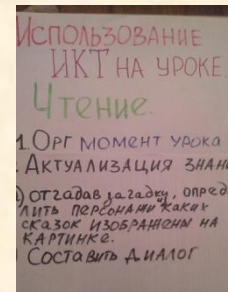 Использование
ИКТ на уроке.
Чтение.
1. Орг момент урока
Актуализация знан
отгадав загадку, опред
лить персонажи каких
сказок изображены на
картинке.
Составить диалог